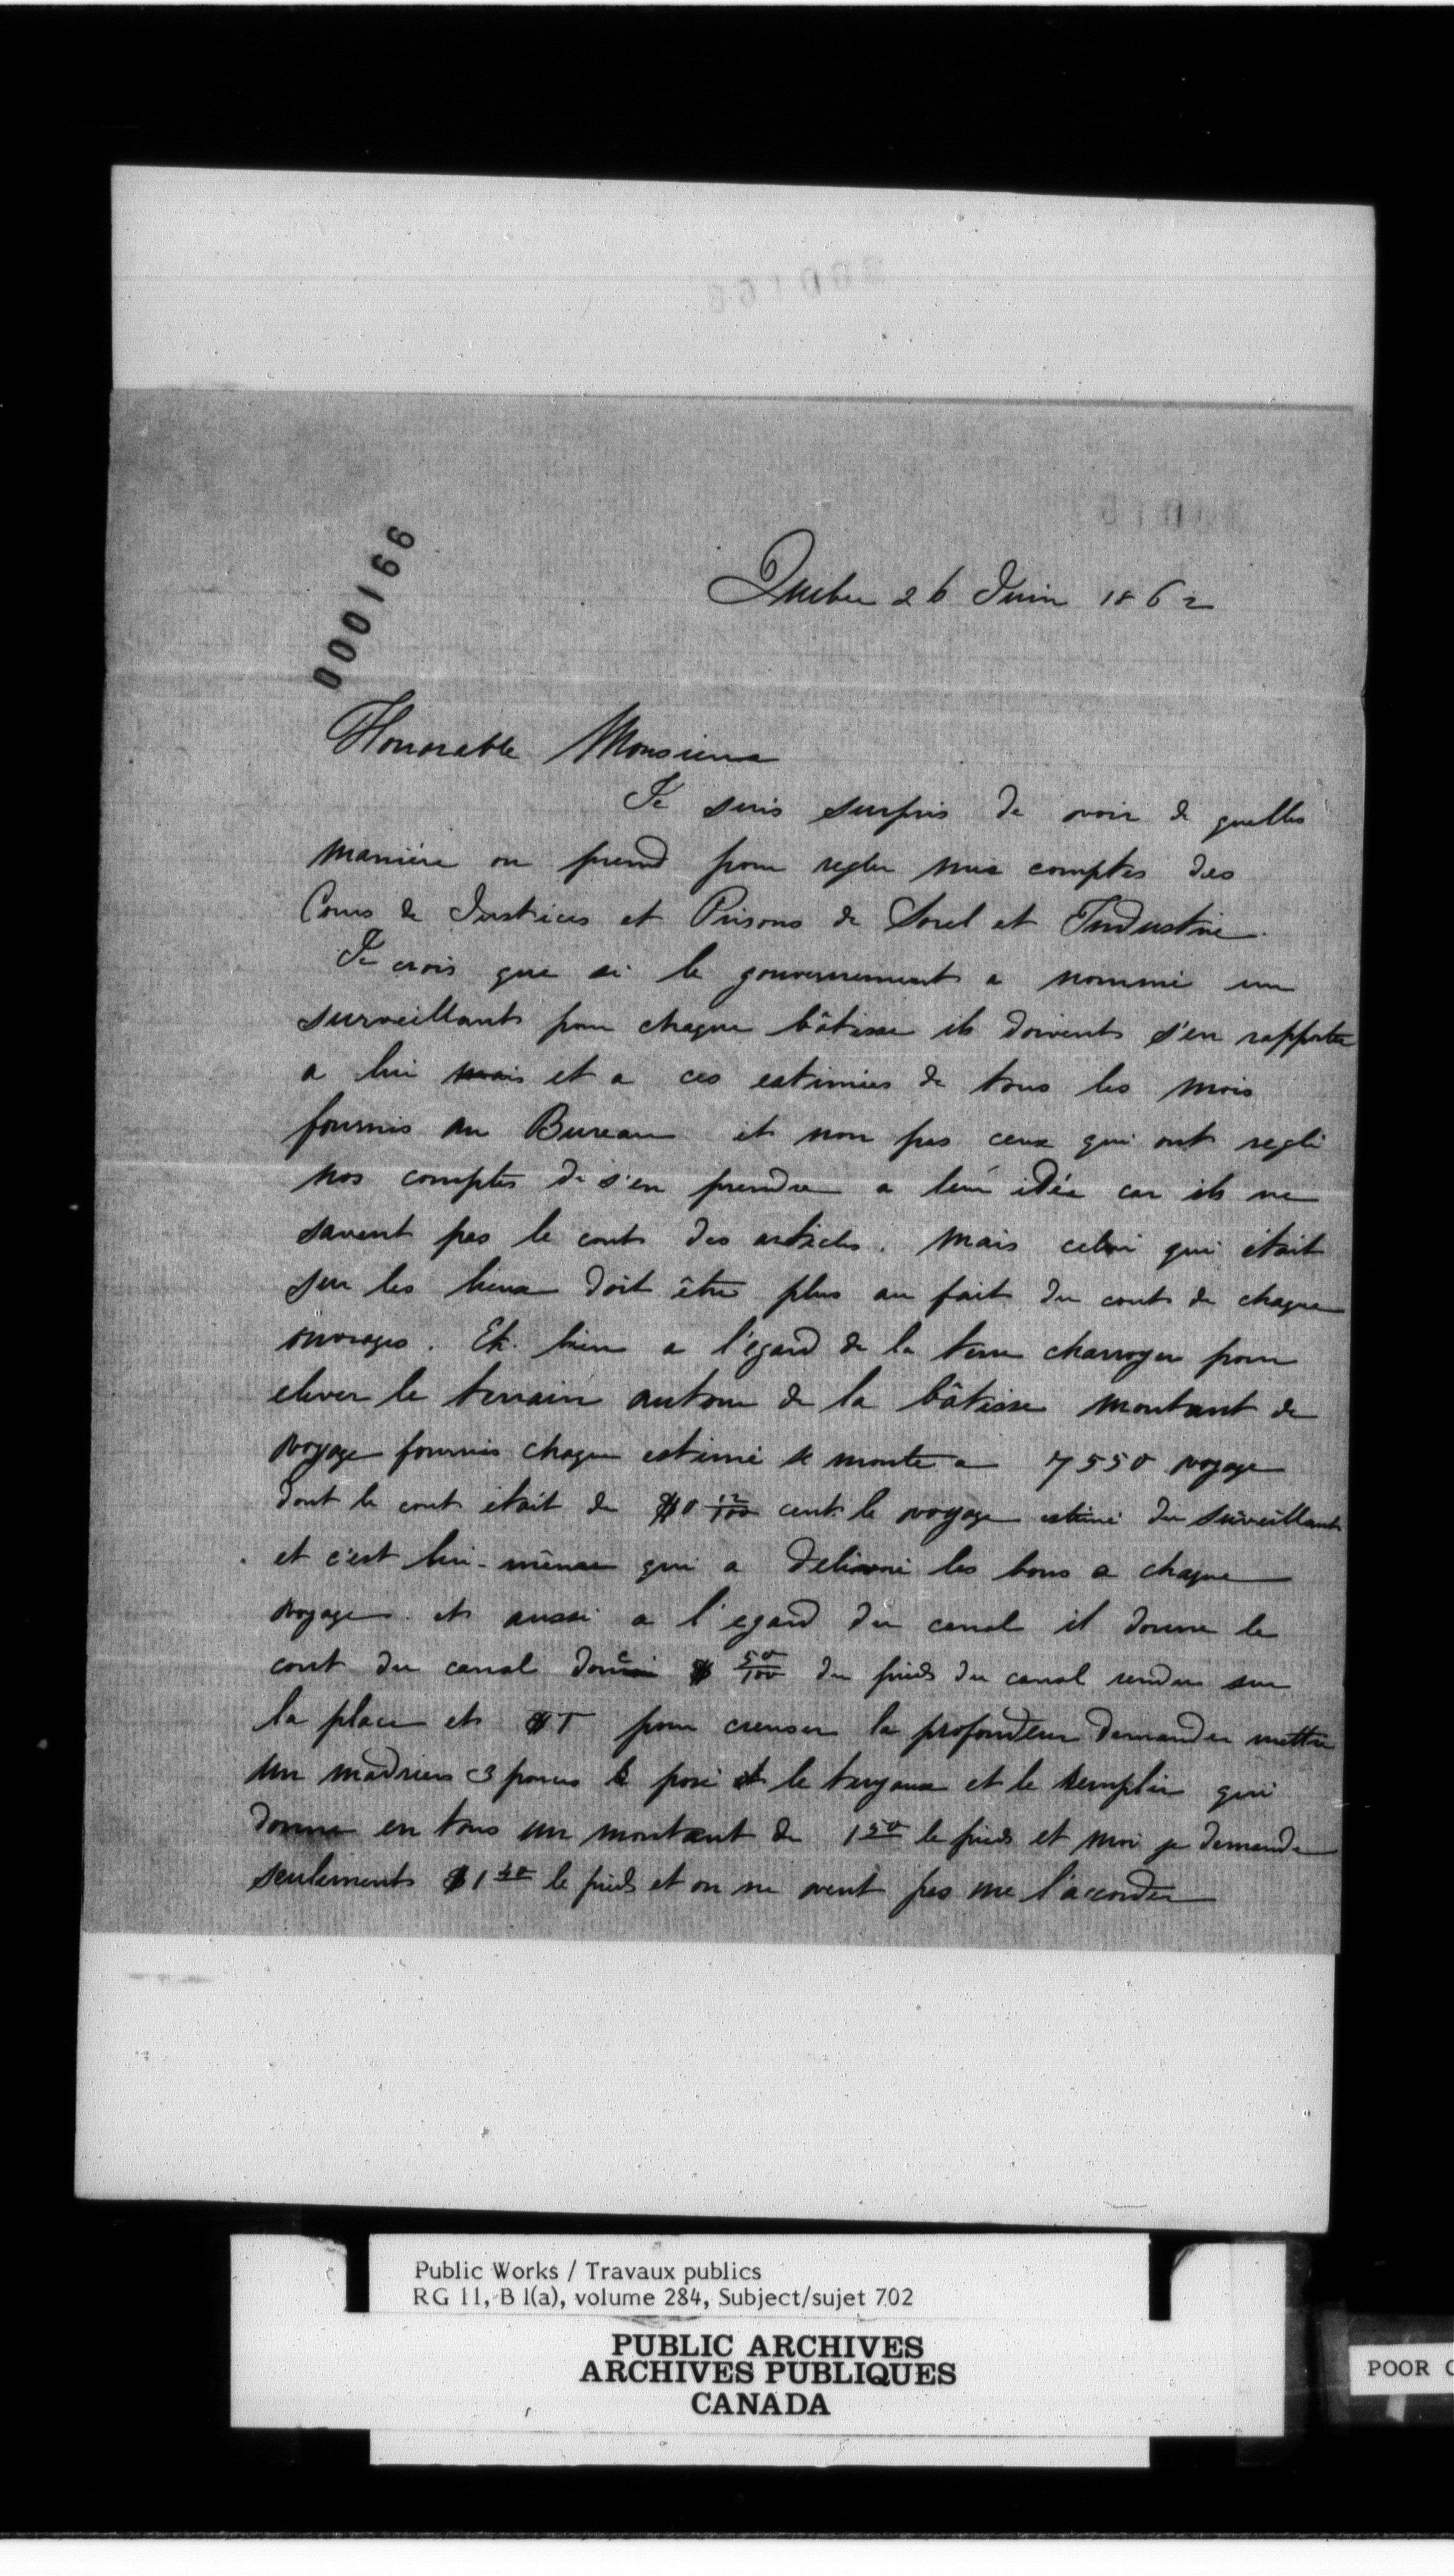 000166
Quebec 26 Juin 1862
Honorable Monsieur
Je suis surpris de voir de quelles
manière on prend pour regler mes comptes des
Cours de Justices et Prisons de Sorel et Industrie.
Je crois que si le gouvernement a nommé un
surveillants pour chaque bâtisse ils doivents s'en rapporter
a lui mais et a ces estimées de tous les mois
fournis au Bureau et non pas ceux qui ont reglé
nos comptes de s'en prendre a leur idée car ils ne
savent pas le couts des articles. Mais celui qui était
sur les lieux doit être plus au fait du couts de chaque
ouvrages. Eh bien a l'égard de la terre charroyer pour
elever le terrain autour de la bâtisse montant de
voyage fournis chaque estimé se monte a 7550 voyage
dont le cout était de $0 12/100 cent le voyage estimé du surveillant
et c'est lui-même qui a delivré les bons a chaque
voyage. et aussi a l'egard du canal il donne le
cout du canal $ 50/100 du pieds du canal rendu sur
la place et $1 pour creuser la profondeur demander mettre
un madriers 3 pouces posé le tuyaux et le remplir qui
donne en tous un montant de 1 50 le pieds et moi je demande
seulements $1 40 le pieds et on ne veut pas me l'accorder
Public Works / Travaux publics
RG 11, B 1(a), volume 284, Subject/sujet 702
PUBLIC ARCHIVES
ARCHIVES PUBLIQUES
CANADA
POOR